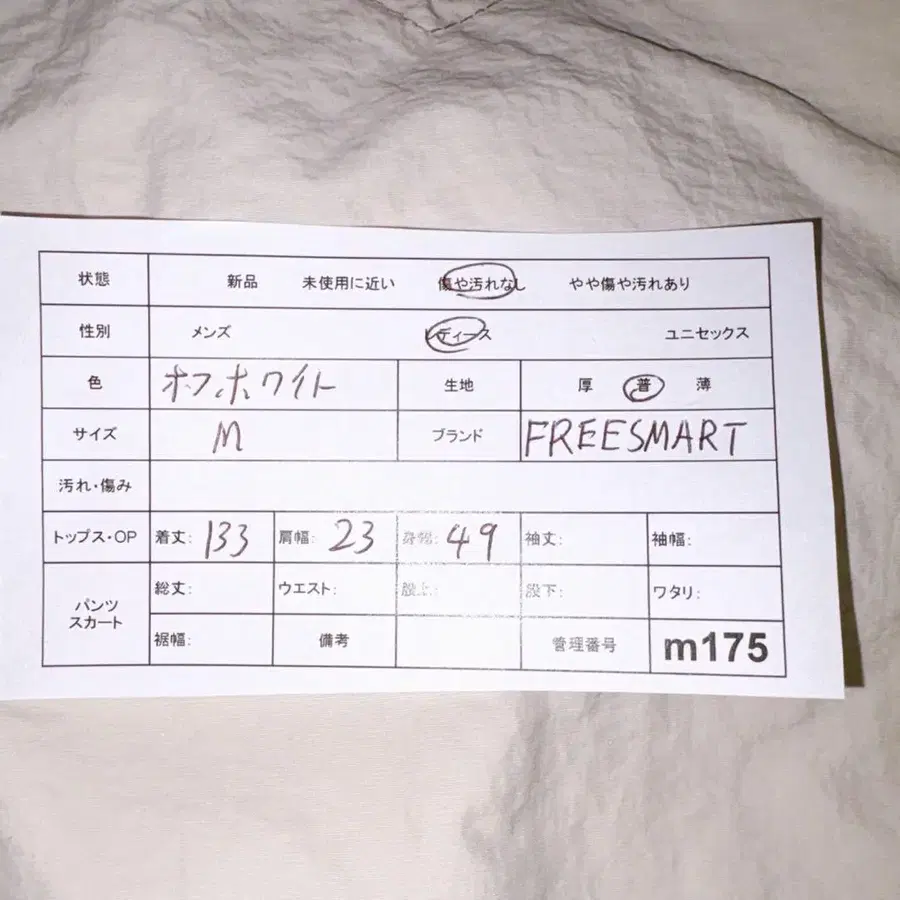 状態 新品 未使用に近い 傷や汚れなし やや傷や汚れあり
性別 メンズ レディース ユニセックス
色 オフホワイト 生地 厚 普 薄
サイズ M ブランド FREESMART
汚れ・傷み
トップス・OP 着丈: 133 肩幅: 23 身幅: 49 袖丈: 袖幅:
パンツ スカート
総丈: ウエスト: 股上: 股下: ワタリ:
裾幅: 備考 管理番号 m175